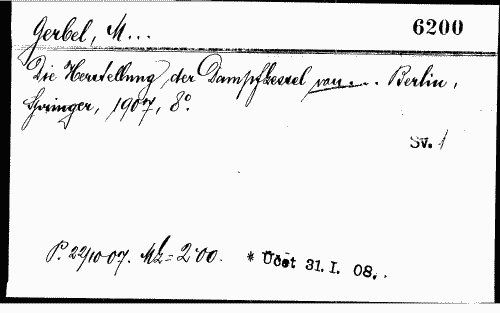 Gerbel, M... 6200
Die Herstellung der Dampfkessel von... Berlin,
Springer, 1907, 8°.
Sv. 1
P. 22/10 07. Mk = 2·00. * Účet 31. I. 08.